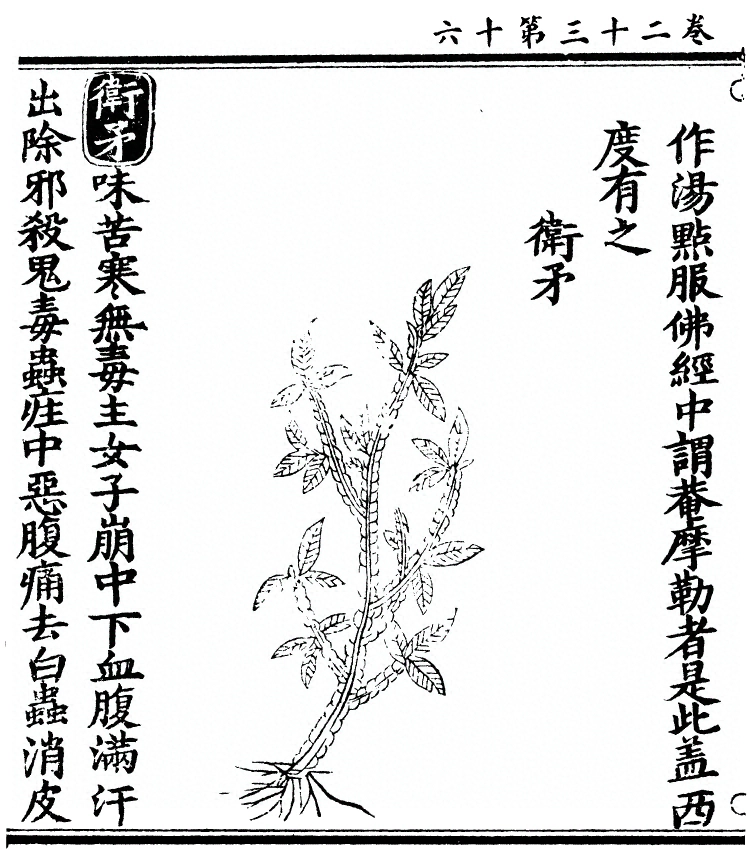 卷二十三第十六
作湯點服佛經中謂菴摩勒者是此盖西
度有之
衛矛
衛矛味苦寒無毒主女子崩中下血腹滿汗
出除邪殺鬼毒蟲疰中惡腹痛去白蟲消皮